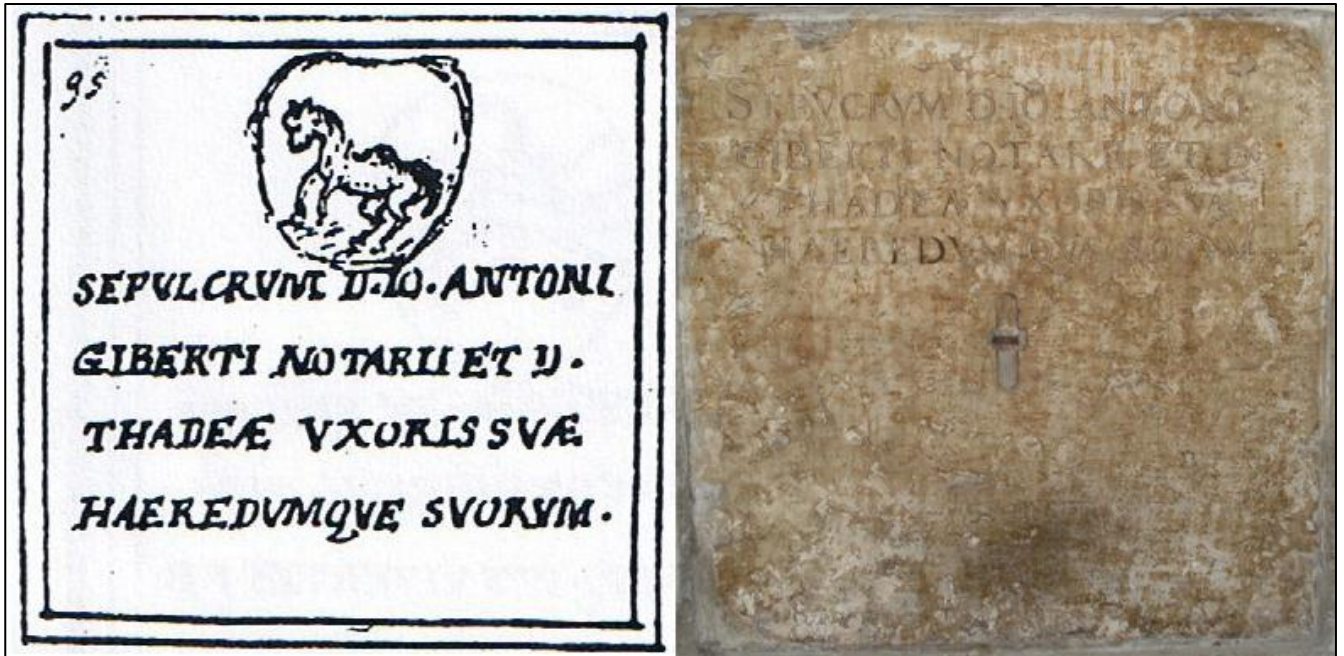 95
SEPVLCRVM D.IO. ANTONI
GIBERTI NOTARII ET D.
THADEÆ VXORIS SVÆ
HAEREDVMQVE SVORVM.
SEPVCRVM D. IO. ANTONI
GIBERTI NOTARII ET D
THADEÆ VXORIS SVÆ